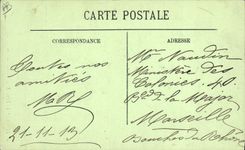 CARTE POSTALE
CORRESPONDANCE
ADRESSE
Toutes nos
amitiés
21-11-13
Mr Naudin
Ministère des
Colonies. 40
Bd de la Major
Marseille
Bouches du Rhône